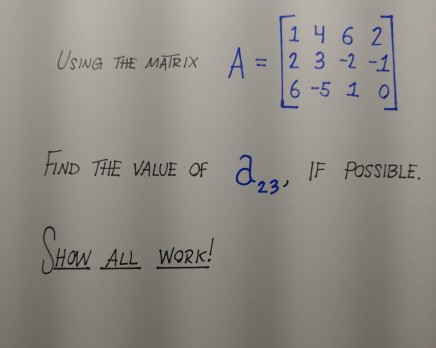 USING THE MATRIX A = [1 4 6 2
2 3 -2 -1
6 -5 1 0]
FIND THE VALUE OF a₂₃, IF POSSIBLE.
SHOW ALL WORK!